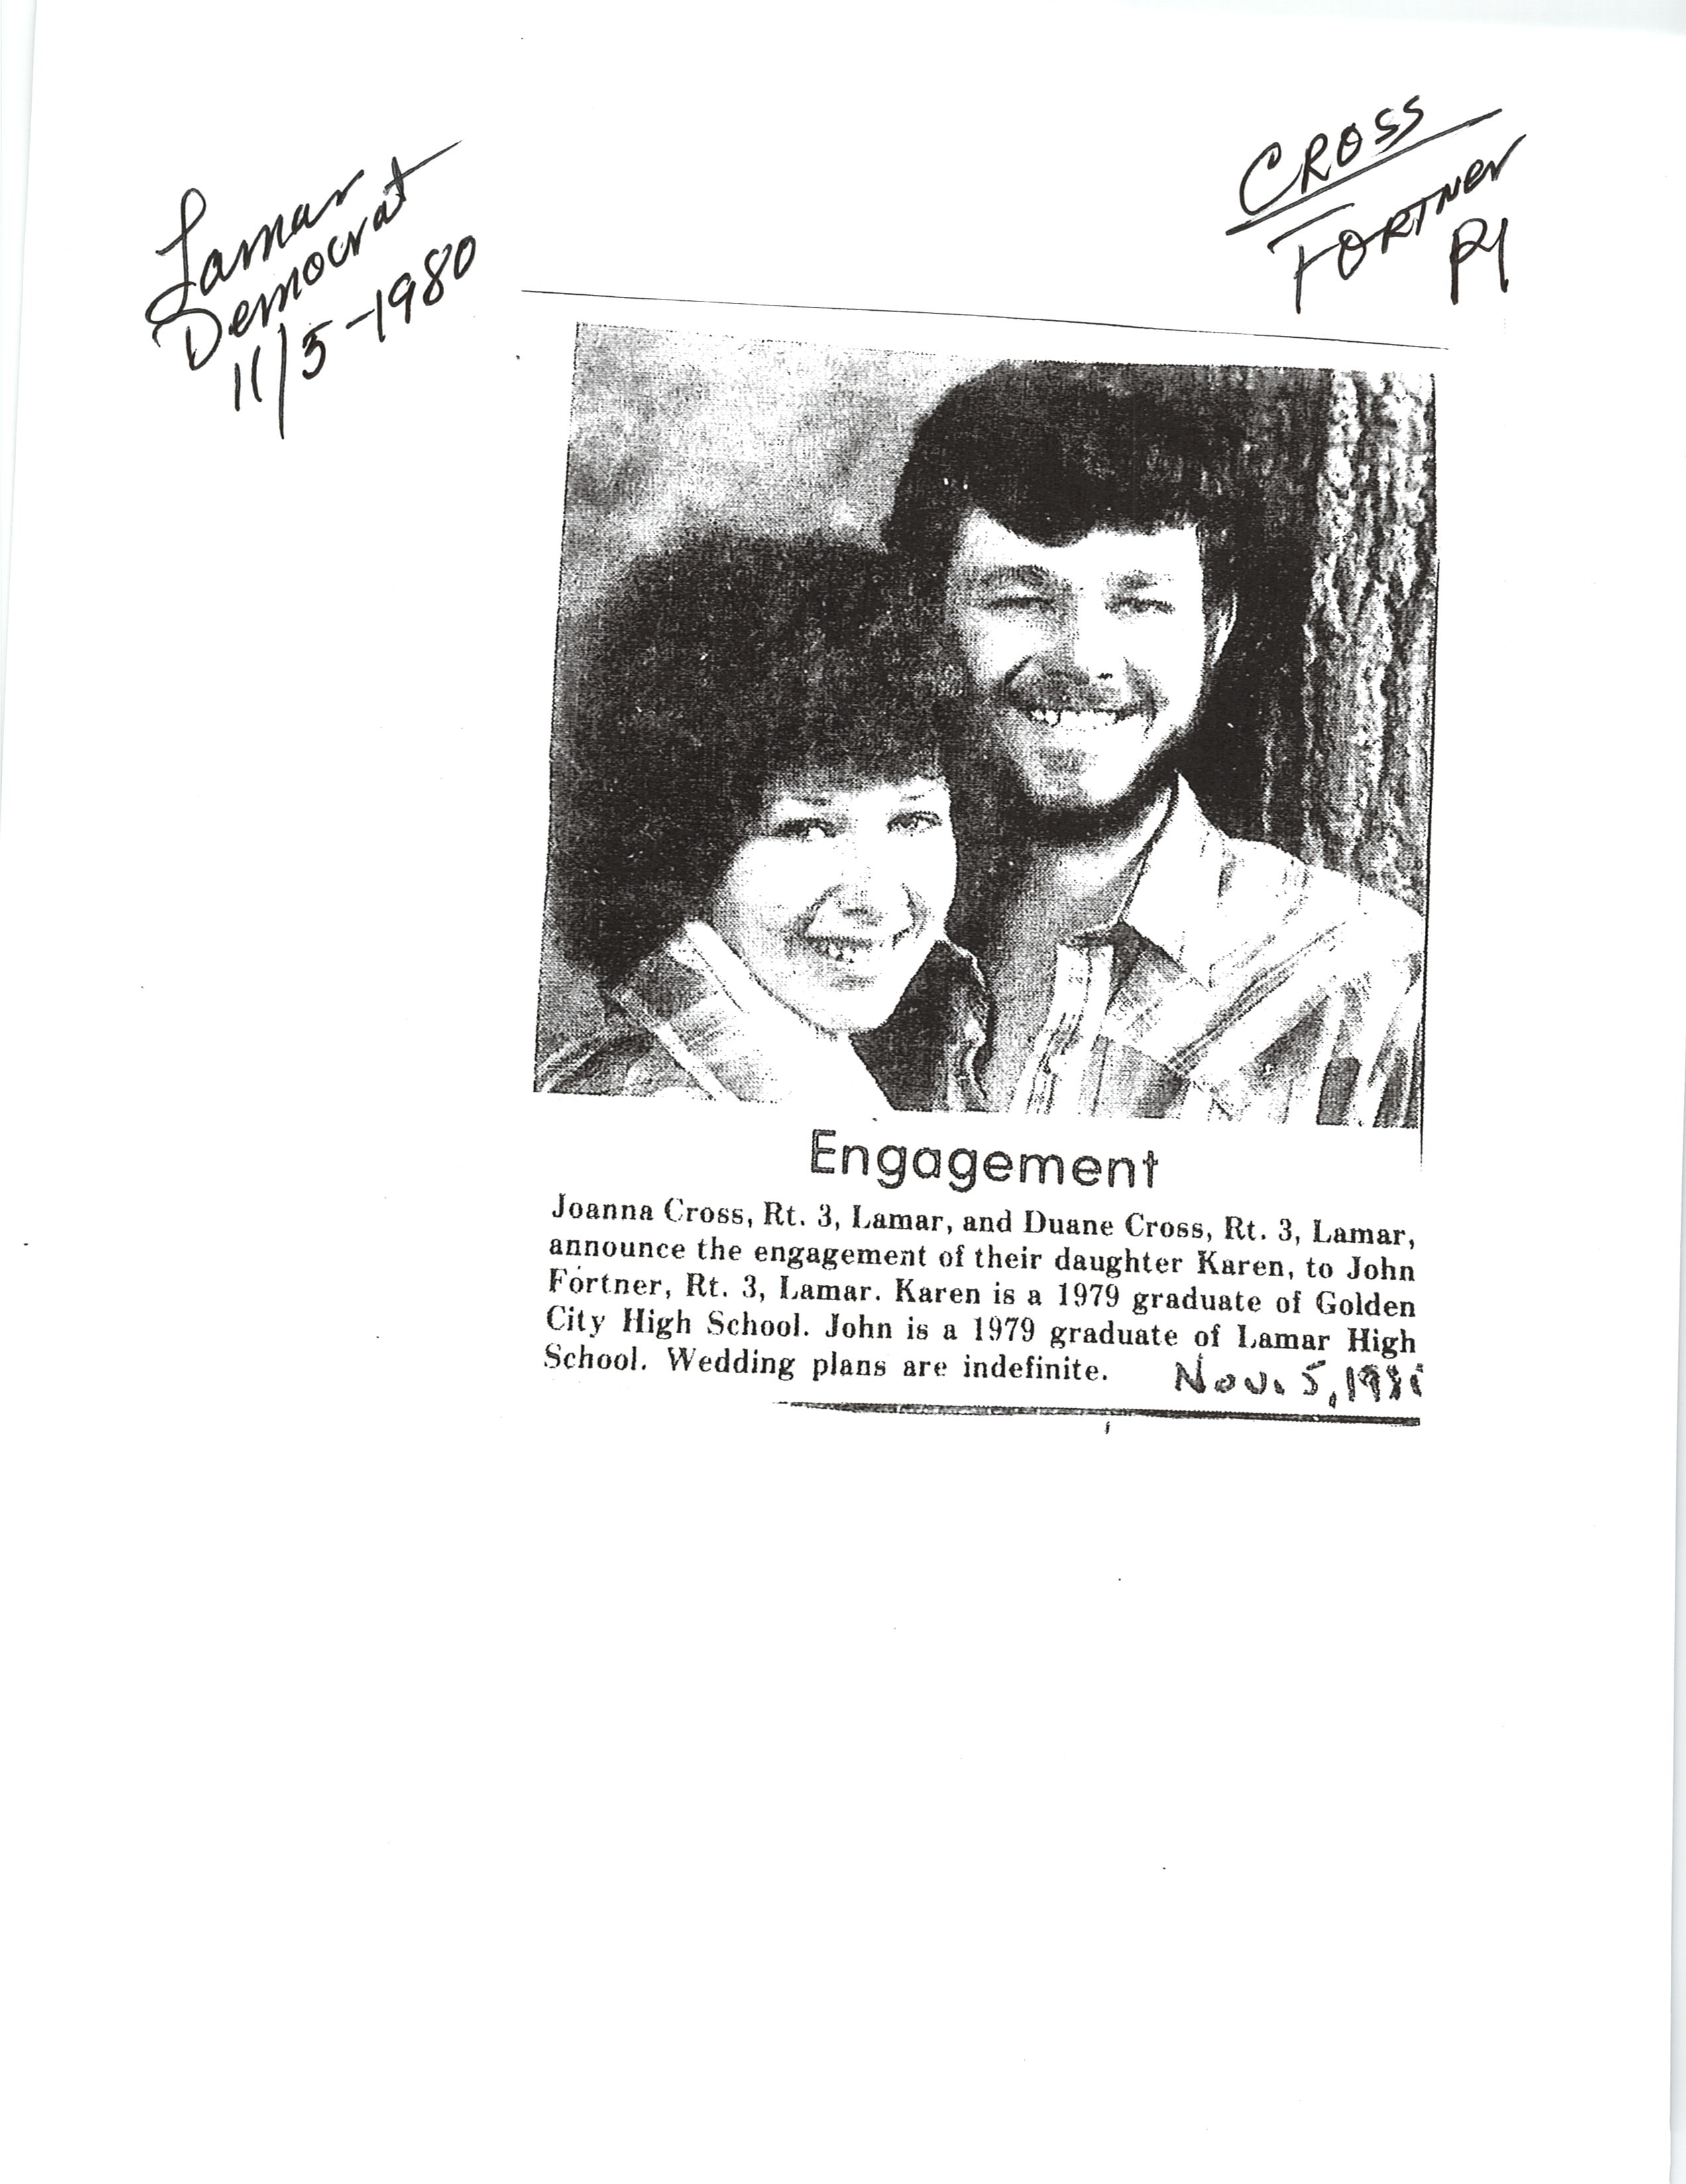 Lamar
Democrat
11/5-1980
CROSS
FORTNER
P1
Engagement
Joanna Cross, Rt. 3, Lamar, and Duane Cross, Rt. 3, Lamar,
announce the engagement of their daughter Karen, to John
Fortner, Rt. 3, Lamar. Karen is a 1979 graduate of Golden
City High School. John is a 1979 graduate of Lamar High
School. Wedding plans are indefinite.
Nov. 5,